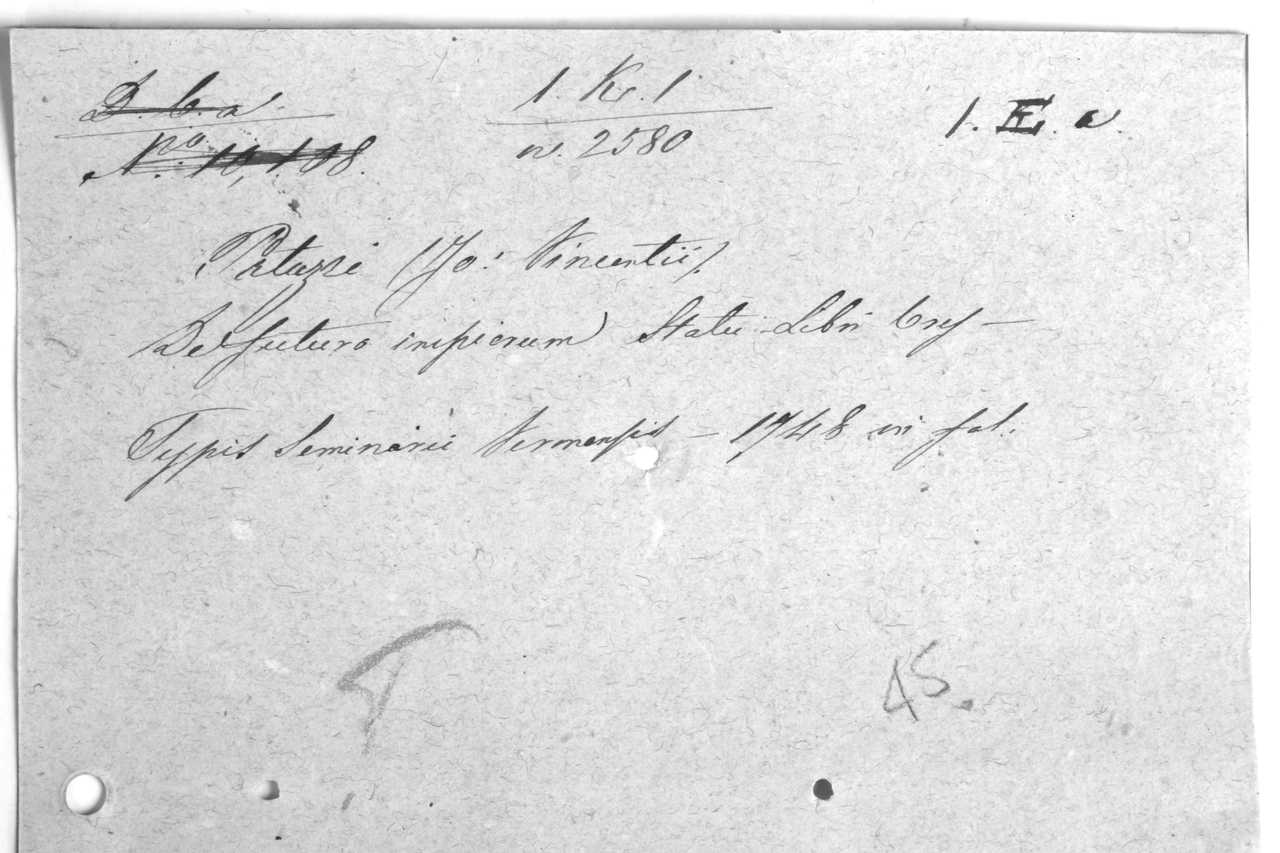 B. C. a.
Nro. 10,108.
1. K. 1
n. 2580
1. E. a.
Patuzzi (Jo: Vincentii)
De futuro impiorum Statu Libri tres —
Typis Seminarii Vermensis — 1748 in fol.
45.